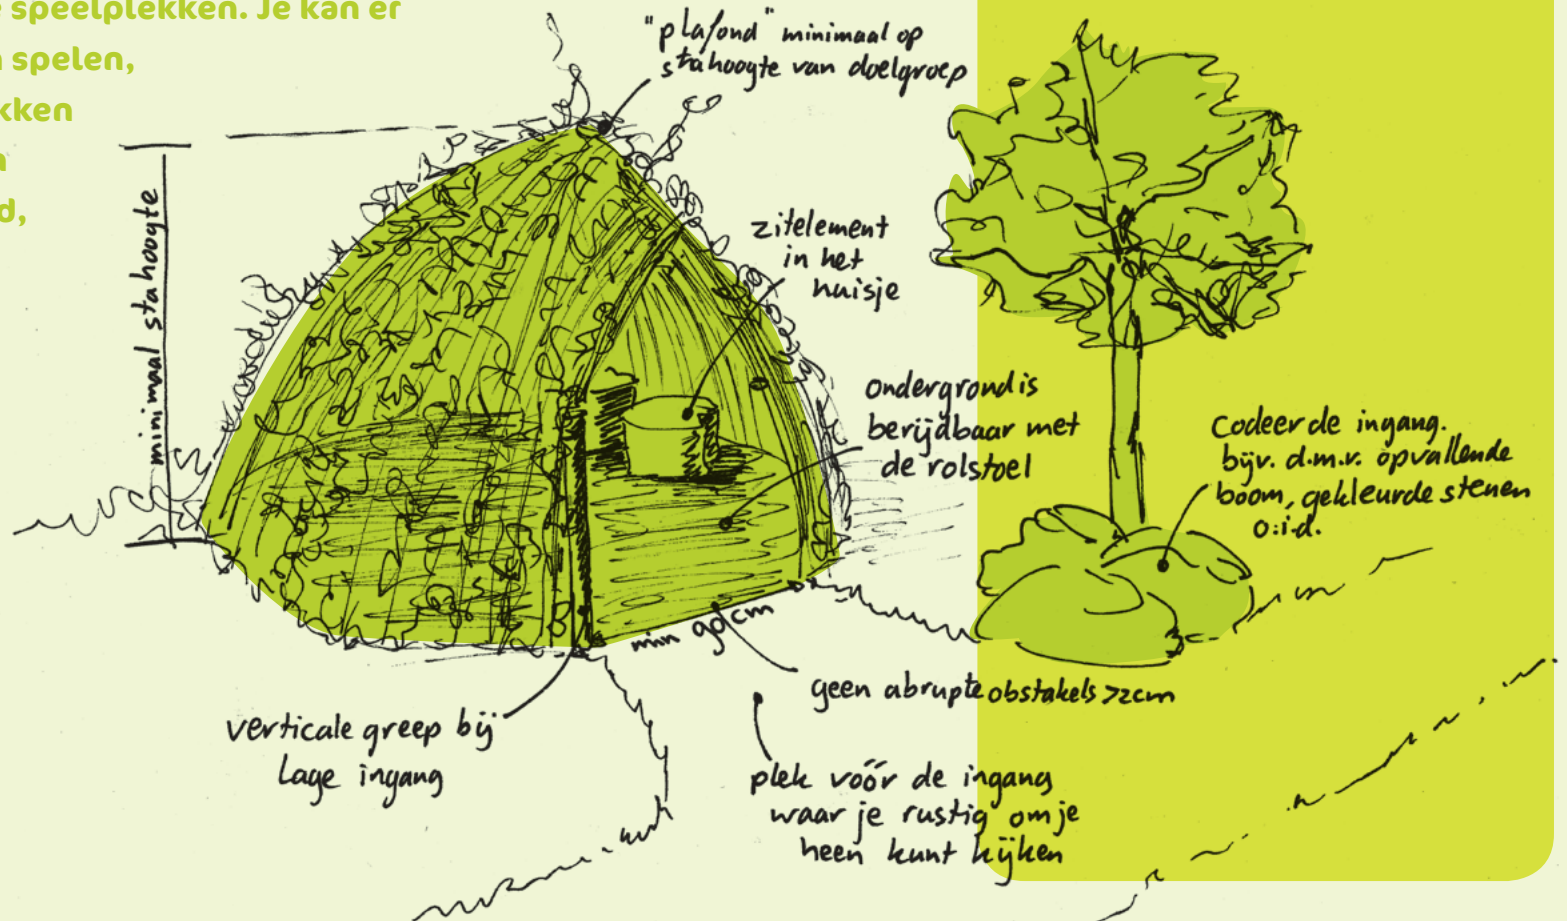 speelplekken. Je kan er
spelen,
"plafond" minimaal op
stahoogte van doelgroep
minimaal stahoogte
zitelement
in het
huisje
ondergrond is
berijdbaar met
de rolstoel
Codeer de ingang.
bijv. d.m.v. opvallende
boom, gekleurde stenen
o.i.d.
min 90 cm
geen abrupte obstakels >2cm
verticale greep bij
lage ingang
plek vóór de ingang
waar je rustig om je
heen kunt kijken